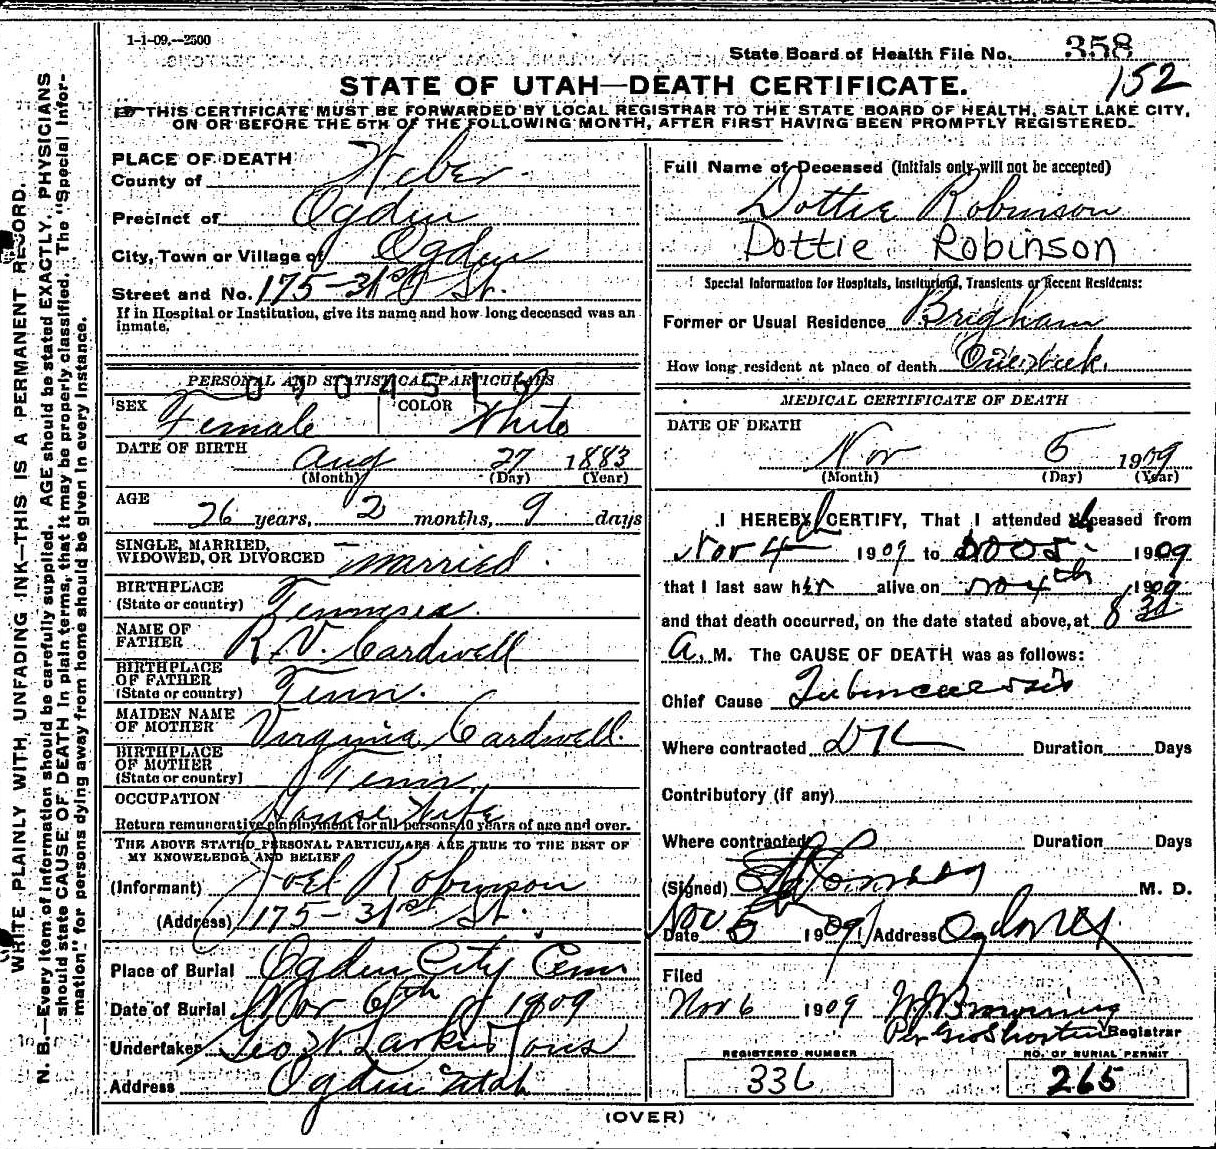 1-1-09,--2500
State Board of Health File No. 358
152
STATE OF UTAH—DEATH CERTIFICATE.
THIS CERTIFICATE MUST BE FORWARDED BY LOCAL REGISTRAR TO THE STATE BOARD OF HEALTH, SALT LAKE CITY,
ON OR BEFORE THE 5TH OF THE FOLLOWING MONTH, AFTER FIRST HAVING BEEN PROMPTLY REGISTERED.
WRITE PLAINLY WITH UNFADING INK—THIS IS A PERMANENT RECORD.
N. B.—Every item of information should be carefully supplied. AGE should be stated EXACTLY. PHYSICIANS
should state CAUSE OF DEATH in plain terms, that it may be properly classified. The "Special Infor-
mation" for persons dying away from home should be given in every instance.
PLACE OF DEATH
County of Weber
Precinct of Ogden
City, Town or Village of Ogden
Street and No. 175-31st St.
If in Hospital or Institution, give its name and how long deceased was an
inmate.
PERSONAL AND STATISTICAL PARTICULARS
SEX Female COLOR White
DATE OF BIRTH Aug 27 1883
(Month) (Day) (Year)
AGE 26 years, 2 months, 9 days
SINGLE, MARRIED,
WIDOWED, OR DIVORCED Married
BIRTHPLACE
(State or country) Tennessee.
NAME OF
FATHER R.V. Cardwell
BIRTHPLACE
OF FATHER
(State or country) Tenn.
MAIDEN NAME
OF MOTHER Virginia Cardwell.
BIRTHPLACE
OF MOTHER
(State or country) Tenn.
OCCUPATION House Wife
Return remunerative employment for all persons 10 years of age and over.
THE ABOVE STATED PERSONAL PARTICULARS ARE TRUE TO THE BEST OF
MY KNOWELEDGE AND BELIEF
(Informant) Joel Robinson
(Address) 175-31st St.
Place of Burial Ogden City Cem
Date of Burial Nov 6th 1909
Undertaker Geo W. Larkin Sons
Address Ogden Utah
Full Name of Deceased (Initials only will not be accepted)
Dottie Robinson
Dottie Robinson
Special Information for Hospitals, Institutions, Transients or Recent Residents:
Former or Usual Residence Brigham
How long resident at place of death One week.
MEDICAL CERTIFICATE OF DEATH
DATE OF DEATH
Nov 5 1909
(Month) (Day) (Year)
I HEREBY CERTIFY, That I attended deceased from
Nov 4th 1909 to Nov 5th 1909
that I last saw her alive on Nov 4th 1909
and that death occurred, on the date stated above, at 8 30
A. M. The CAUSE OF DEATH was as follows:
Chief Cause Tuberculosis
Where contracted DK Duration Days
Contributory (if any)
Where contracted Duration Days
(Signed) M. D.
Date Nov 5 1909 Address Ogden
Filed
Nov 6 1909 W J Browning
Per Geo Shorten Registrar
REGISTERED NUMBER
336
NO. OF BURIAL PERMIT
265
(OVER)